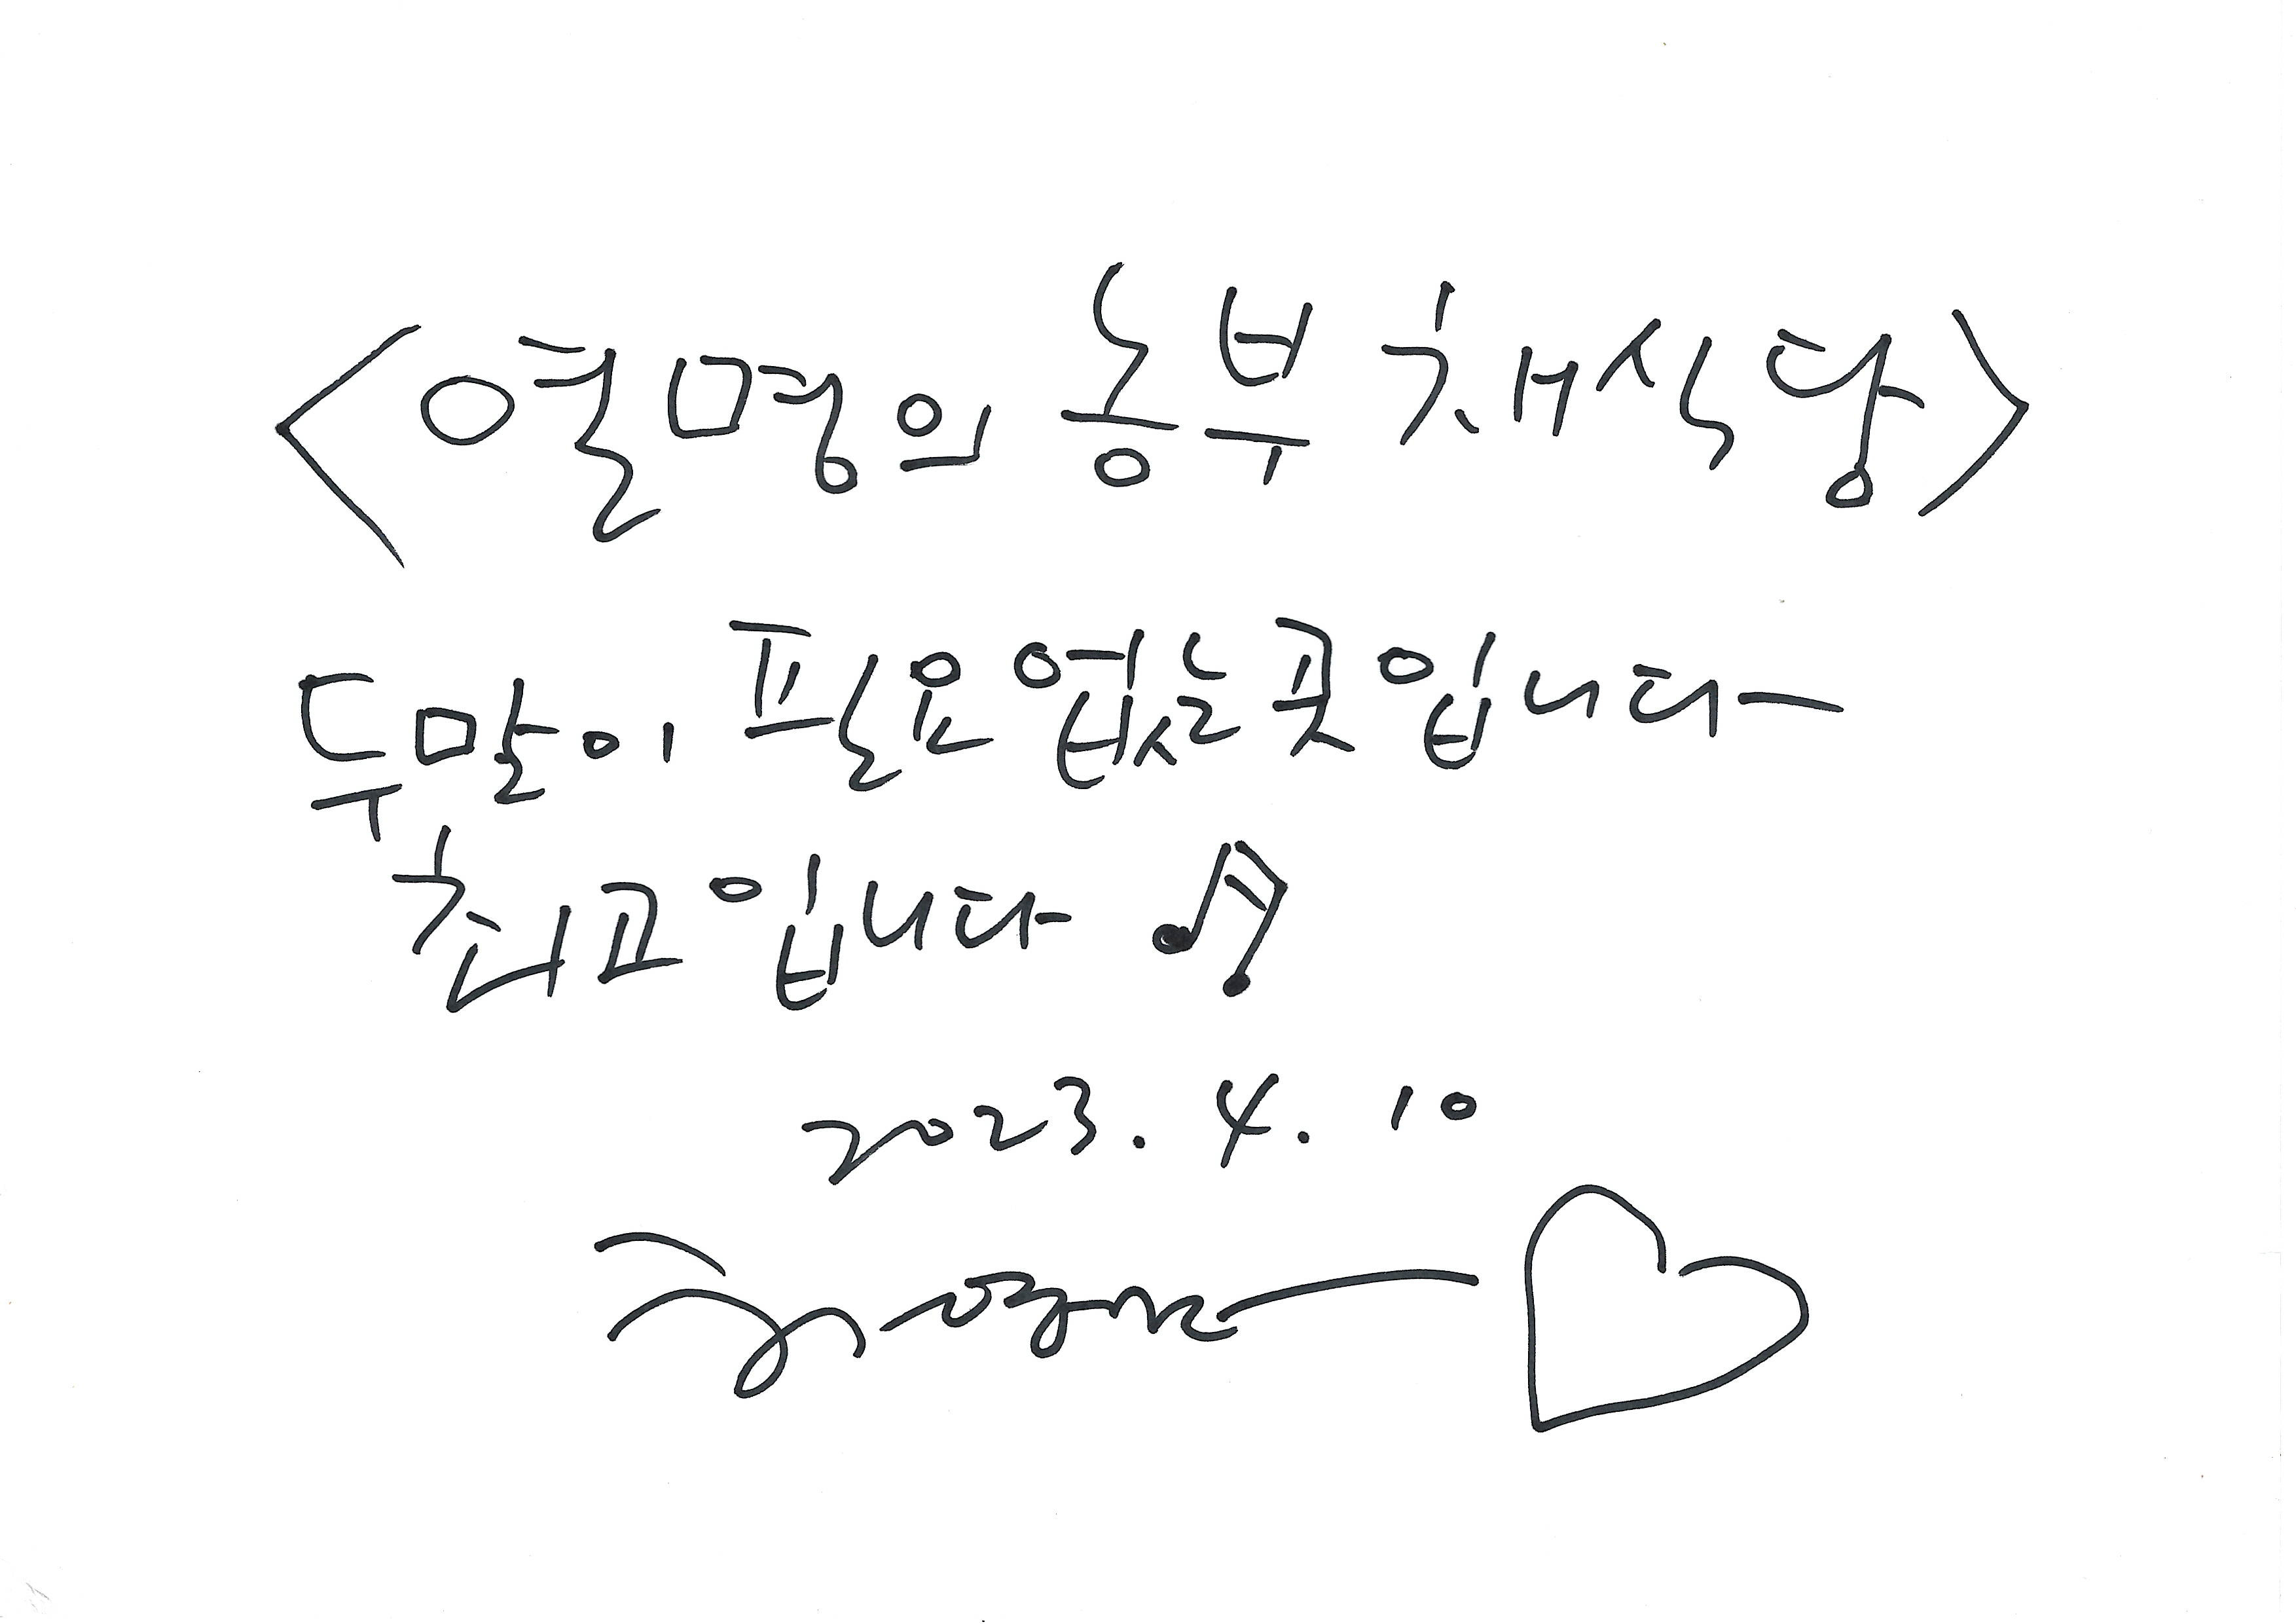 <열명의 농부 채식당>
두말이 필요없는 곳입니다
최고입니다 ♫
2023. 4. 10